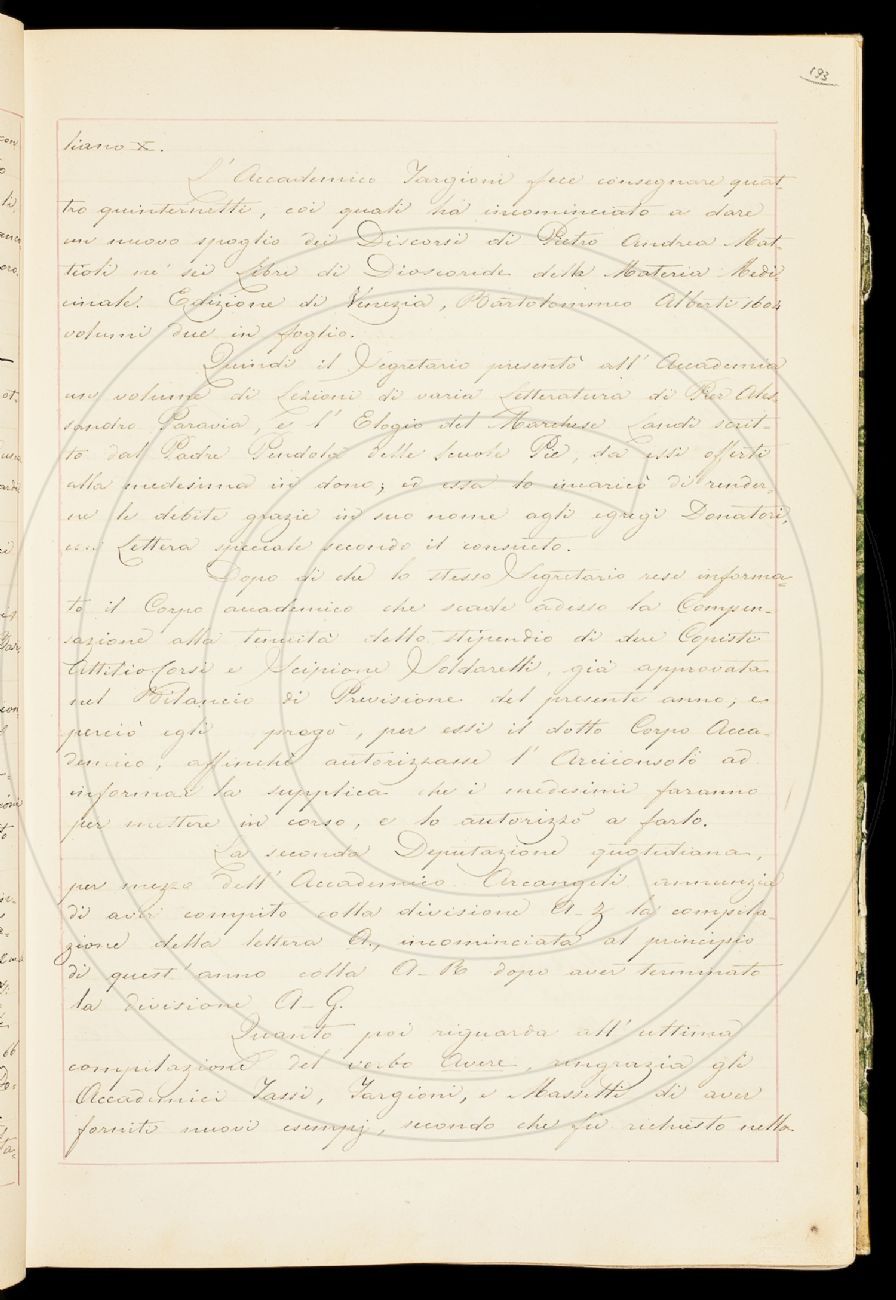 193
liano X.
L' Accademico Targioni fece consegnare quat-
tro quinternetti, coi quali ha incominciato a dare
un nuovo spoglio dei Discorsi di Pietro Andrea Mat-
tioli ne' sei Libri di Dioscoride della Materia Medi-
cinale. Edizione di Venezia, Bartolommeo Alberti 1604
volumi due in foglio.
Quindi il Segretario presentò all' Accademia
un volume di Lezioni di varia Letteratura di Pier Ales-
sandro Paravia, e l' Elogio del Marchese Landi scrit-
to dal Padre Pendola delle Scuole Pie, da essi offerti
alla medesima in dono; ed essa lo incaricò di render-
ne le debite grazie in suo nome agli egregi Donatori,
con Lettera speciale secondo il consueto.
Dopo di che lo stesso Segretario rese informa-
to il Corpo accademico che scade adesso la Compen-
sazione alla tenuità dello stipendio di due Copisti
Attilio Corsi e Scipione Soldarelli, già approvata
nel Bilancio di Previsione del presente anno; e
perciò egli pregò, per essi il dotto Corpo Acca-
demico, affinchè autorizzasse l' Arciconsolo ad
informar la supplica che i medesimi faranno
per mettere in corso, e lo autorizzò a farlo.
La seconda Deputazione quotidiana,
per mezzo dell' Accademico Arcangeli annunzia
di aver compito colla divisione A-Z la compila-
zione della lettera A., incominciata al principio
di quest' anno colla A-R dopo aver terminato
la divisione A-G.
Quanto poi riguarda all' ultima
compilazione del verbo Avere, ringrazia gli
Accademici Tassi, Targioni, e Massetti di aver
forniti nuovi esempj, secondo che fu richiesto nella